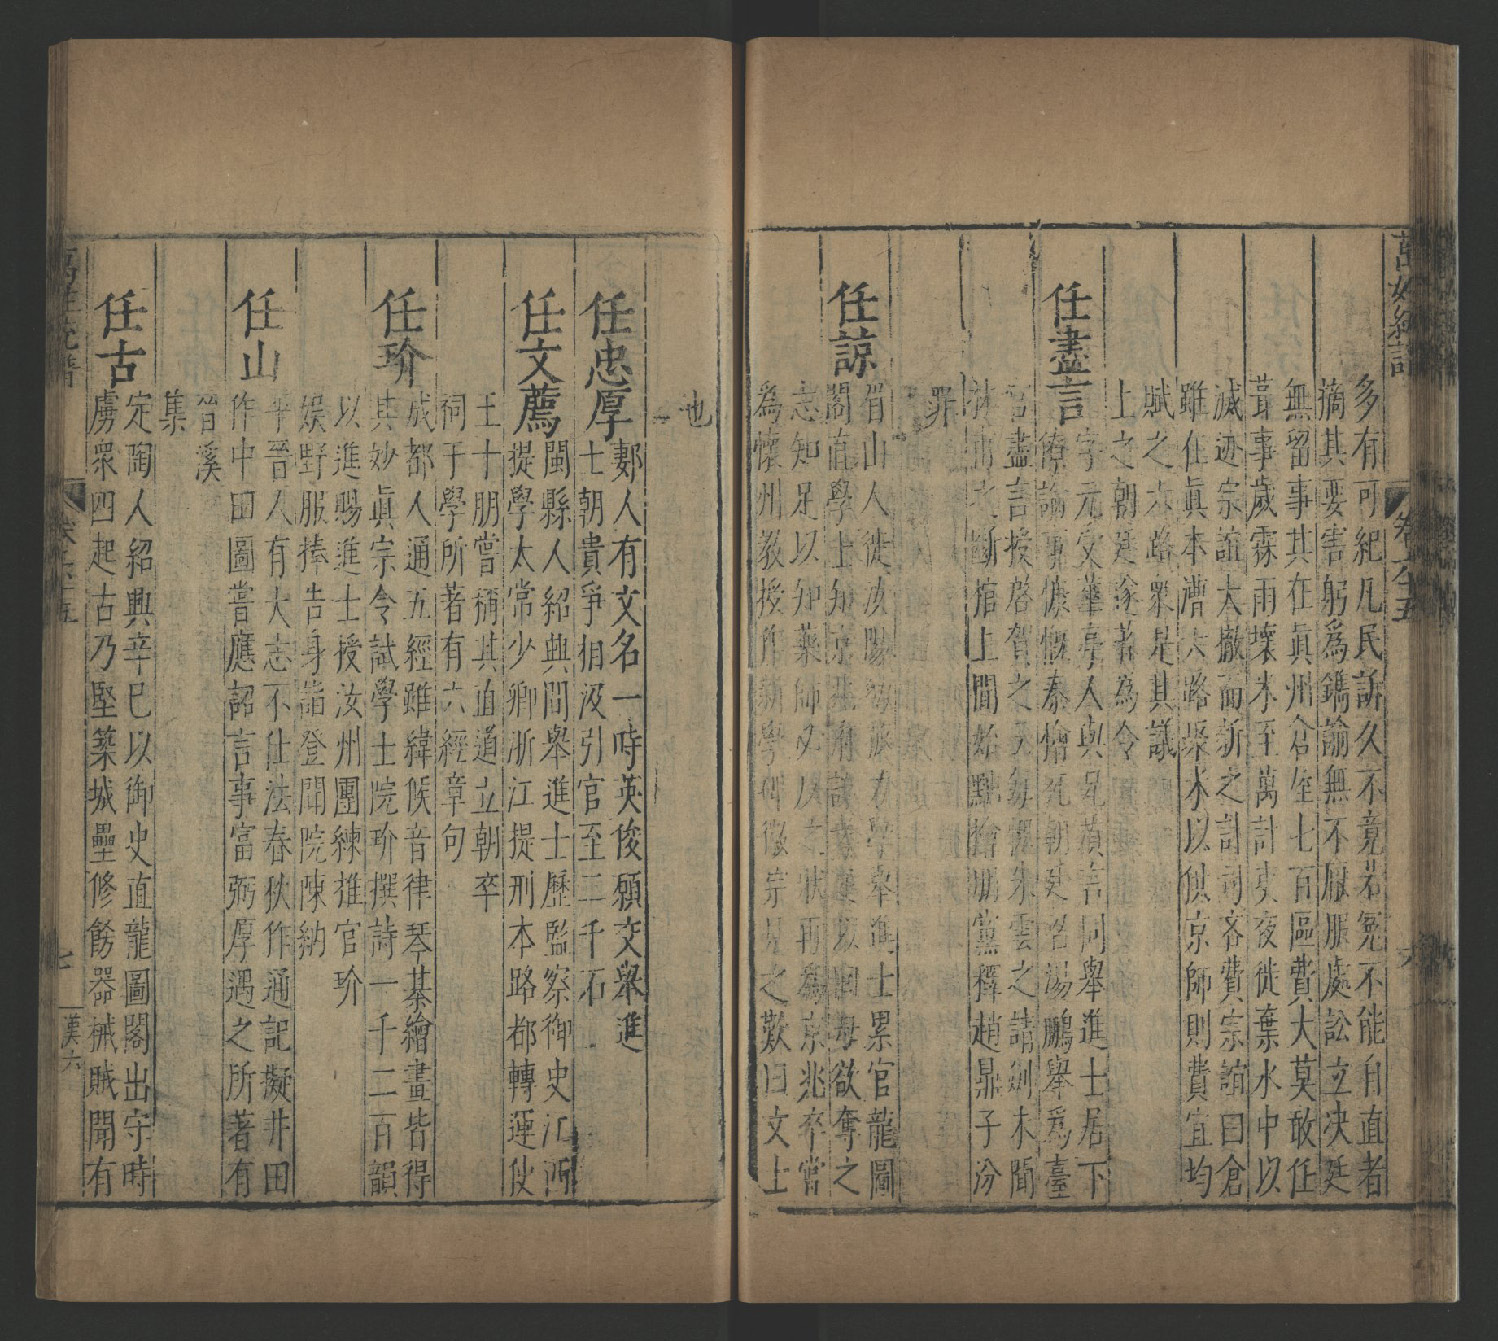 萬姓統譜 卷六十五 六
多有可紀凡民訴久不竟若冤不能自直者
摘其要害躬為鐫諭無不厭服處訟立决廷
無留事其在眞州倉屋七百區費大莫敢任
葺事歲霖雨壞木至萬計吏夜徙葉水中以
滅迹宗誼大撤而新之計司吝費宗誼曰倉
雖在眞本漕六路聚米以供京師則費宜均
賦之六路眾是其議
上之朝廷遂著為令
任盡言 字元受華亭人與兄質言同舉進士居下
僚論事慷慨秦檜死朝廷召湯鵬舉為臺
官盡言授啓賀之
之請劍未聞
上聞始黜檜朋黨釋趙鼎子汾
罪
任諒 眉山人徙汝陽 舉進士累官龍圖
閣直學士知京兆府 欲奪之
志知足以知蔡師必以 再為京兆卒嘗
為懷州教授 徽宗見之歎曰文士
也
任忠厚 鄴人有文名一時英俊願交舉進
士朝貴爭相汲引官至二千石
任文薦 閩縣人紹興間舉進士歷監察御史江浙
提學太常少卿浙江提刑本路都轉運使
王十朋嘗稱其直道立朝卒
祠于學所著有六經章句
任玠 成都人通五經雖緯候音律琴棊繪畫皆得
其妙眞宗令試學士院玠撰詩一千二百韻
以進賜進士授汝州團練推官玠
娛野服捧告身詣登聞院陳納
任山 平晉人有大志不仕法春秋作通記擬井田
作中田圖嘗應詔言事富弼厚遇之所著有
智溪
集
任古 定陶人紹興辛巳以御史直龍圖閣出守時
虜衆四起古乃堅築城壘修飭器械賊聞有
萬姓統譜 卷六十五 七 漢六